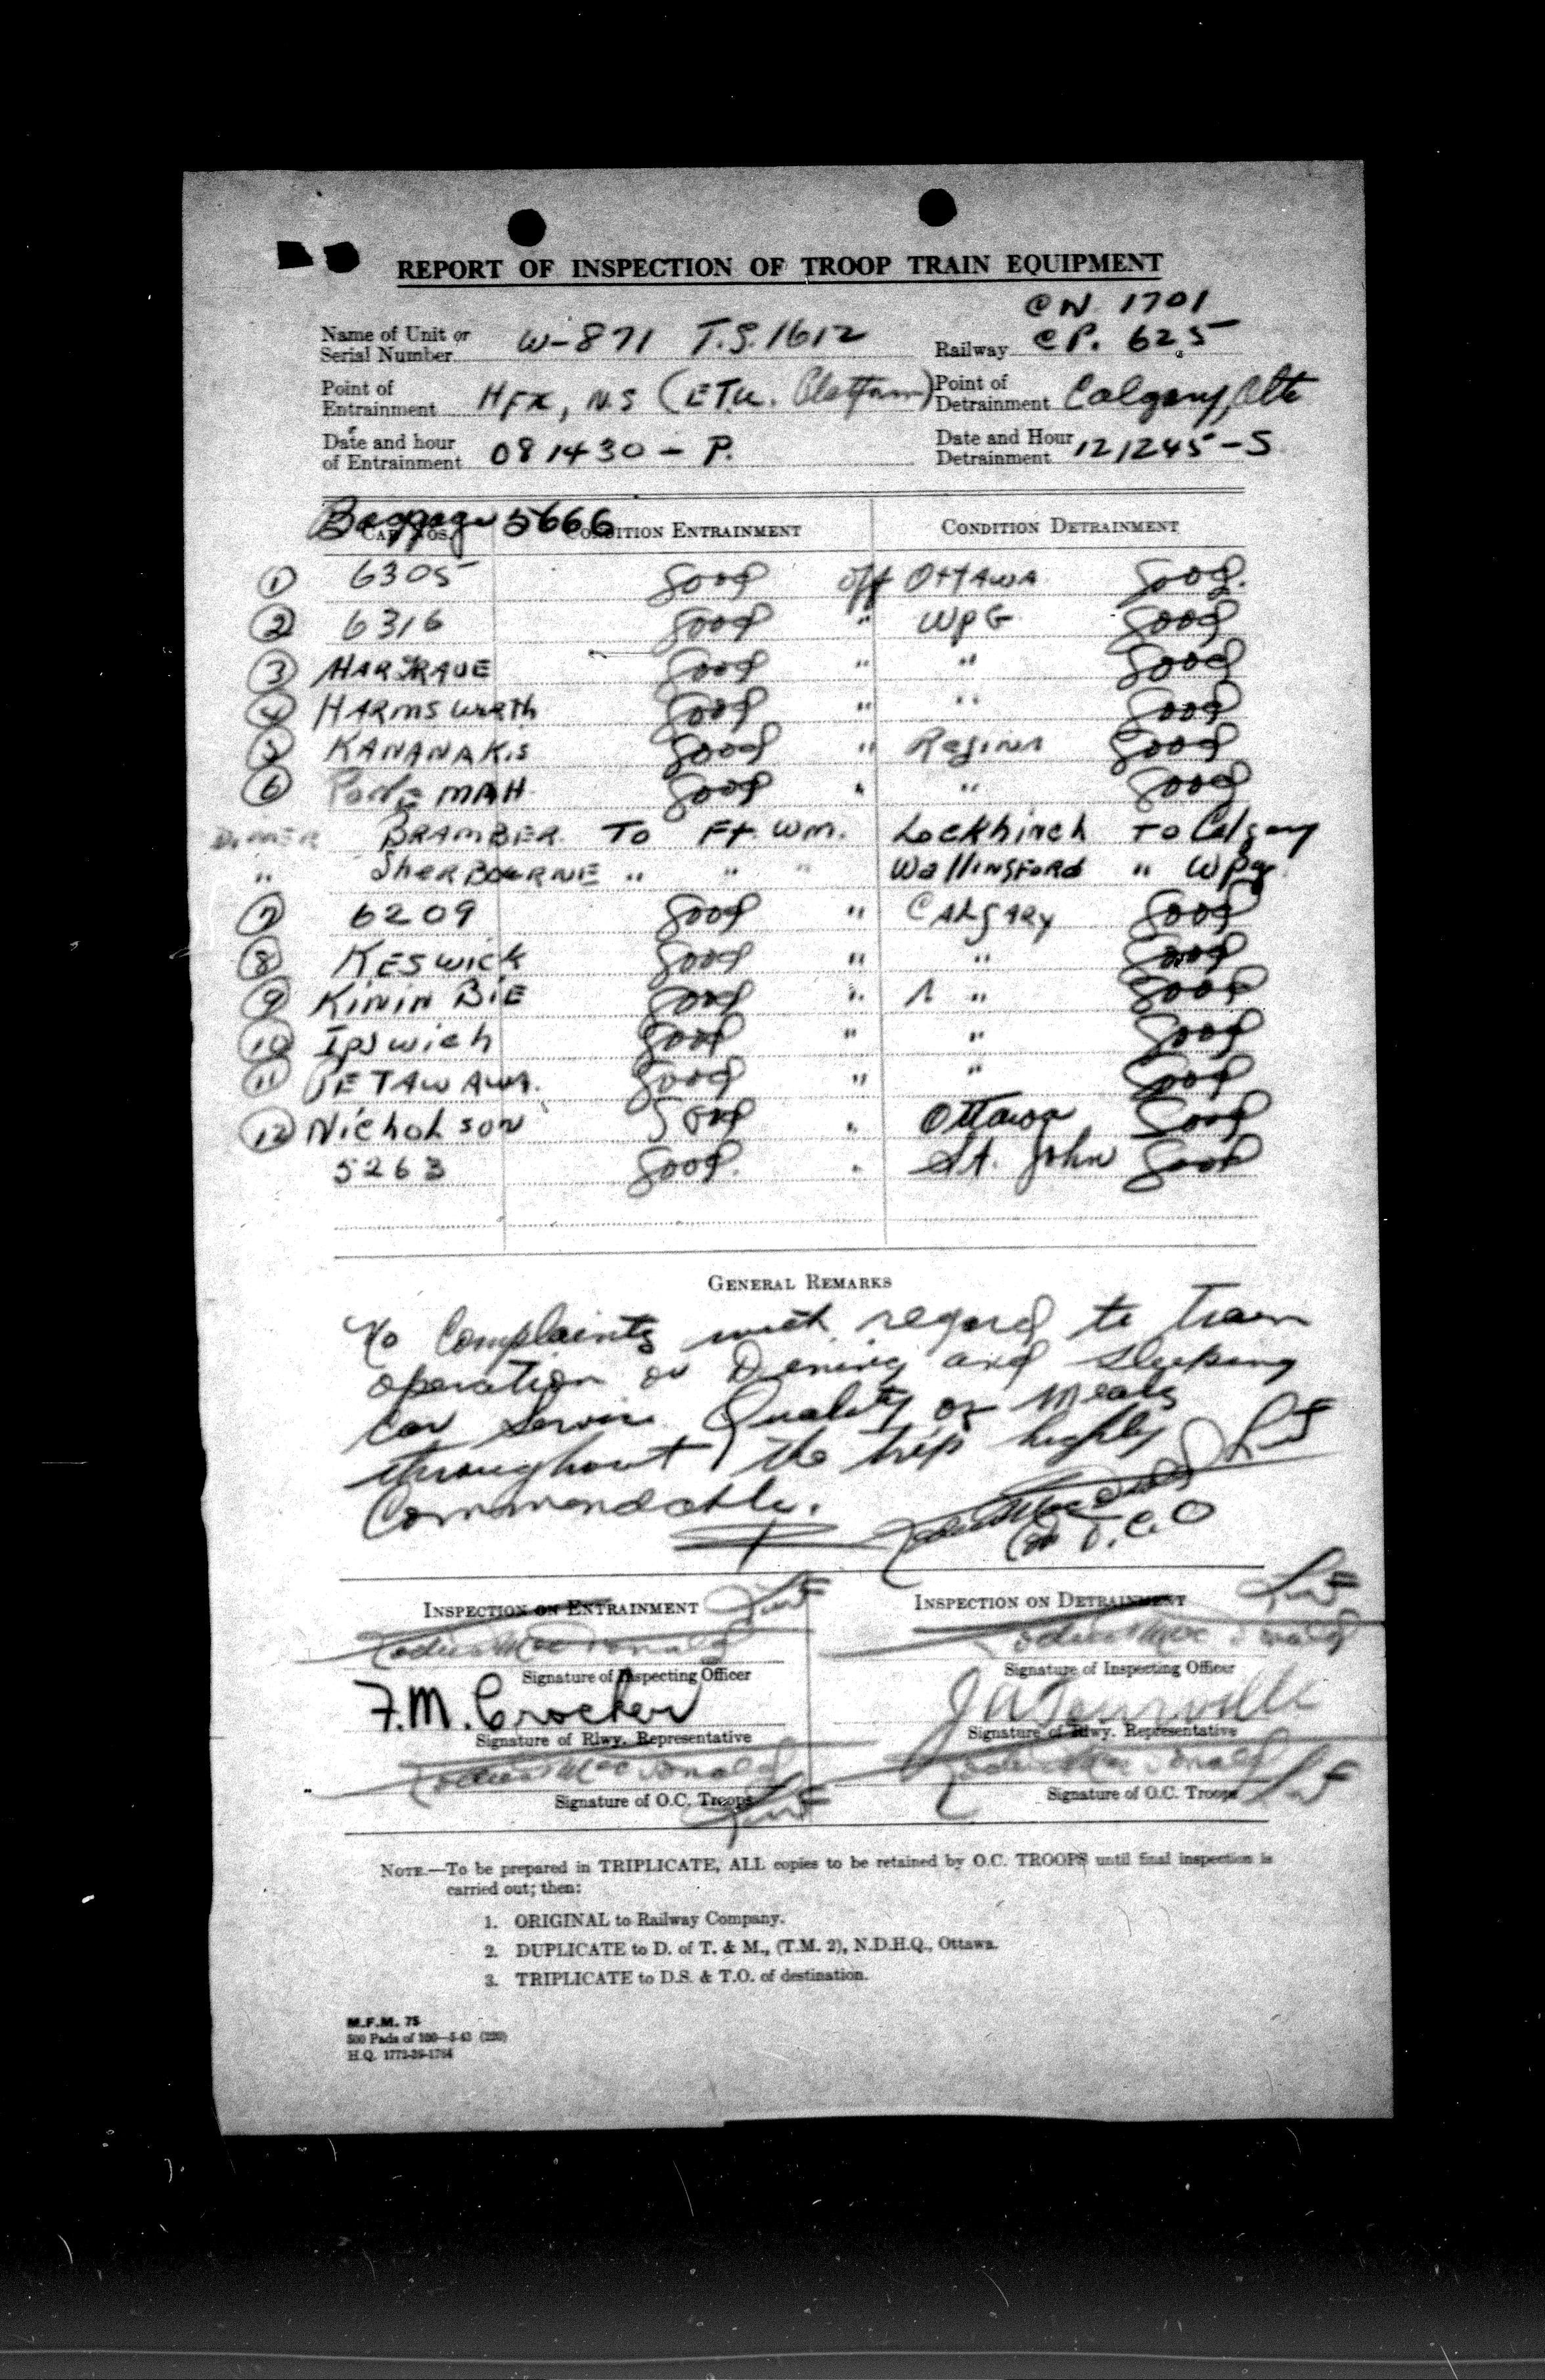 REPORT OF INSPECTION OF TROOP TRAIN EQUIPMENT
CN. 1701
Name of Unit or Serial Number W-871 T.S. 1612 Railway CP. 625
Point of Entrainment HFX, N.S (ETU. Platform) Point of Detrainment Calgary, Alta
Date and hour of Entrainment 081430 - P. Date and Hour Detrainment 121245-S
Baggage 5666
CAR NOS. CONDITION ENTRAINMENT CONDITION DETRAINMENT
1 6305 good off OTTAWA good.
2 6316 good " WPG good
3 HARGRAVE good " " good
4 HARMSworth good " " good
5 KANANAKIS good " Regina good
6 MAH good " " good
DINNER BRAMBER TO Ft. Wm. Lockhinch TO Calgary
" SherBOURNE " " " WallINGFORd " Wpg
7 6209 good " CALgARy good
8 KESwick good " " good
9 KININ BIE good " " good
10 Ipswich good " " good
11 PETAWAWA. good " " good
12 NichoLson good " Ottawa good
5263 good. " St. John good
GENERAL REMARKS
No Complaints with regard to train
operation or Dining and sleeping
car service Quality of Meals
throughout the trip highly
Commendable.
Lieut
INSPECTION ON ENTRAINMENT Lieut INSPECTION ON DETRAINMENT Lieut
MacDonald MacDonald
Signature of Inspecting Officer Signature of Inspecting Officer
F.M. Crocker J A Tourville
Signature of Rlwy. Representative Signature of Rlwy. Representative
MacDonald MacDonald
Signature of O.C. Troops Lieut Signature of O.C. Troops Lieut
NOTE.—To be prepared in TRIPLICATE, ALL copies to be retained by O.C. TROOPS until final inspection is
carried out; then:
1. ORIGINAL to Railway Company.
2. DUPLICATE to D. of T. & M., (T.M. 2), N.D.H.Q., Ottawa.
3. TRIPLICATE to D.S. & T.O. of destination.
M.F.M. 75
500 Pads of 100—5-43 (220)
H.Q. 1772-39-1764